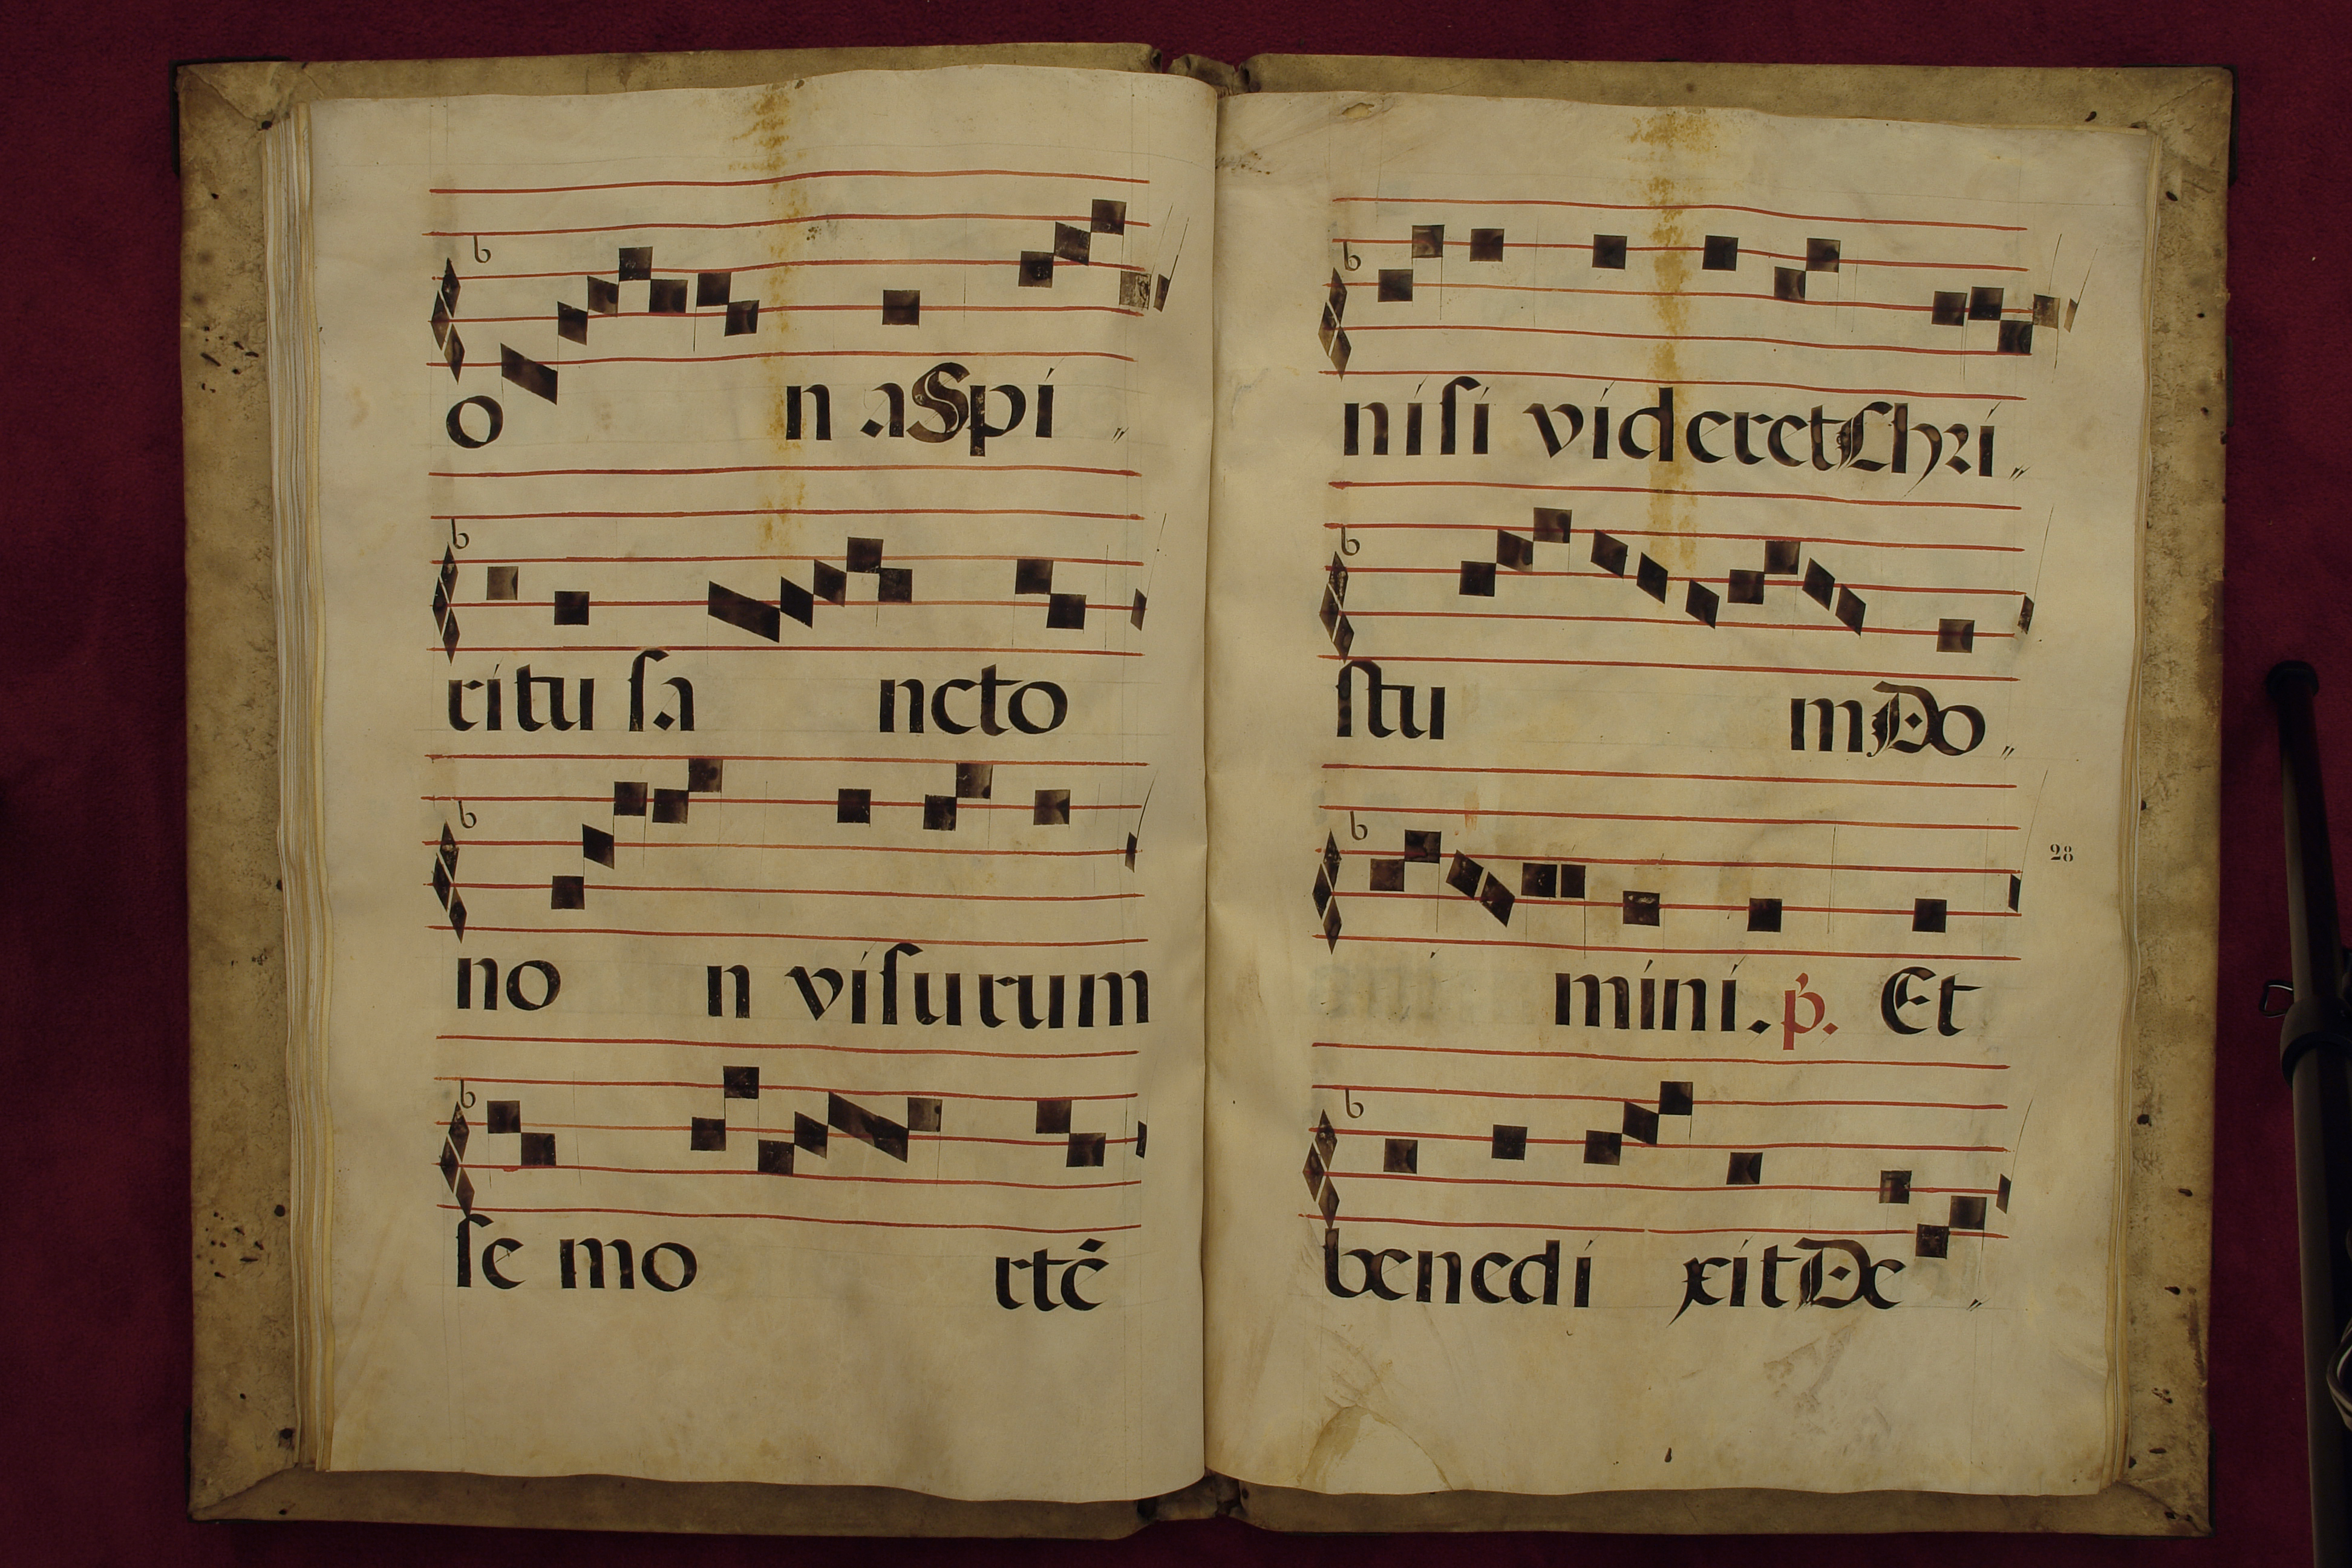 o n a Spi〃
ritu ſa ncto
no n viſurum
ſe mo rtē
niſi videret Chri〃
ſtu m Do〃
28
mini. p̄. Et
benedi xit De〃